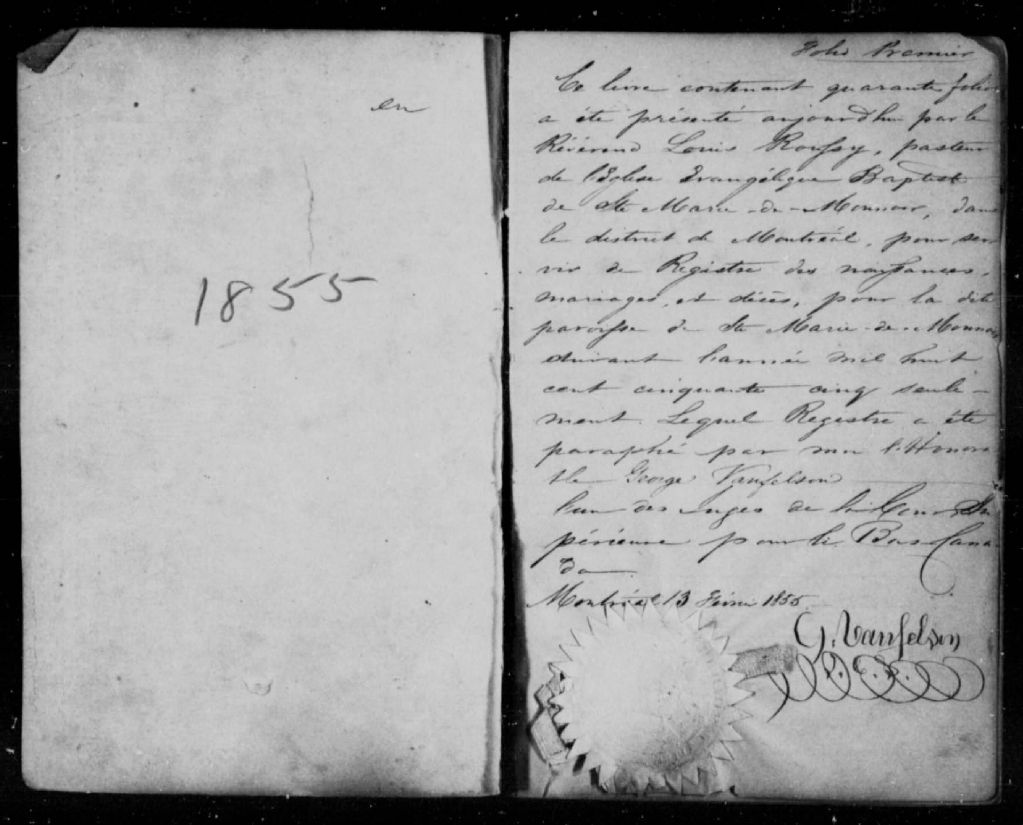 en
1855
Folio Premier
Ce livre contenant quarante folios
a été présenté aujourd'hui par le
Révérend Louis Roussy, pasteur
de l'Eglise Evangélique Baptist
de Ste Marie-de-Monnoir, dans
le district de Montréal, pour ser
vir de Registre des naissances,
mariages, et décès, pour la dite
paroisse de Ste Marie-de-Monnoir
durant l'année mil huit
cent cinquante cinq seule-
ment. Lequel Registre a été
paraphé par moi l'Honora
ble George Vanfelson
l'un des Juges de la Cour Su
périeure pour le Bas Cana
da
Montréal 13 Février 1855.
G. Vanfelson